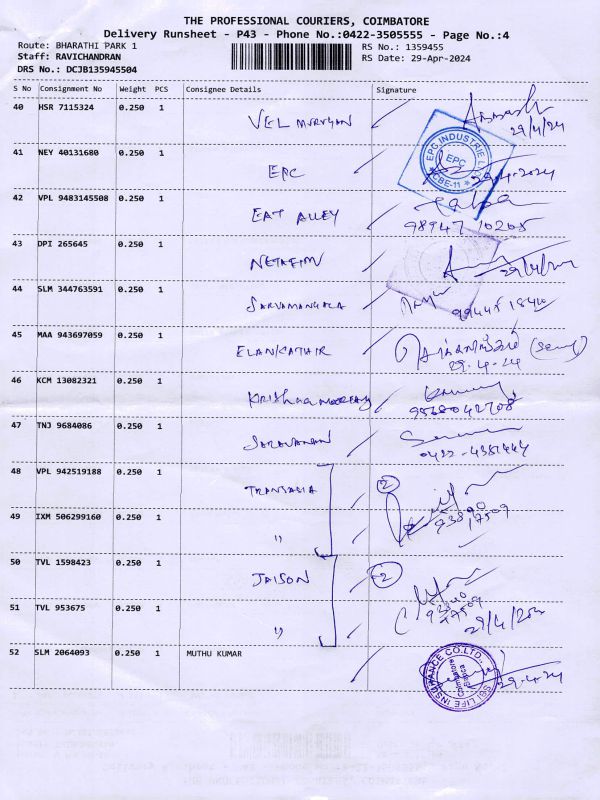 THE PROFESSIONAL COURIERS, COIMBATORE
Delivery Runsheet - P43 - Phone No.:0422-3505555 - Page No.:4
Route: BHARATHI PARK 1 RS No.: 1359455
Staff: RAVICHANDRAN RS Date: 29-Apr-2024
DRS No.: DCJB135945504
S No Consignment No Weight PCS Consignee Details Signature
40 HSR 7115324 0.250 1 VEL MURUGAN 29/4/24
41 NEY 40131680 0.250 1 EPC EPC INDUSTRIE CBE-11 EPC 29.4.2024
42 VPL 9483145508 0.250 1 EAT ALLEY 98947 10205
43 DPI 265645 0.250 1 NETAFIM
44 SLM 344763591 0.250 1 SARVAMANGALA 99445 18410
45 MAA 943697059 0.250 1 ELANKATHIR 29.4.24
46 KCM 13082321 0.250 1 9568042708
47 TNJ 9684086 0.250 1 SARAVANAN 0422-4351444
48 VPL 942519188 0.250 1 TRANSASIA 2
49 IXM 506299160 0.250 1 " 93890 17509
50 TVL 1598423 0.250 1 JAISON 2
51 TVL 953675 0.250 1 "
52 SLM 2064093 0.250 1 MUTHU KUMAR SBI LIFE INSURANCE CO.LTD., Coimbatore 29.4.24